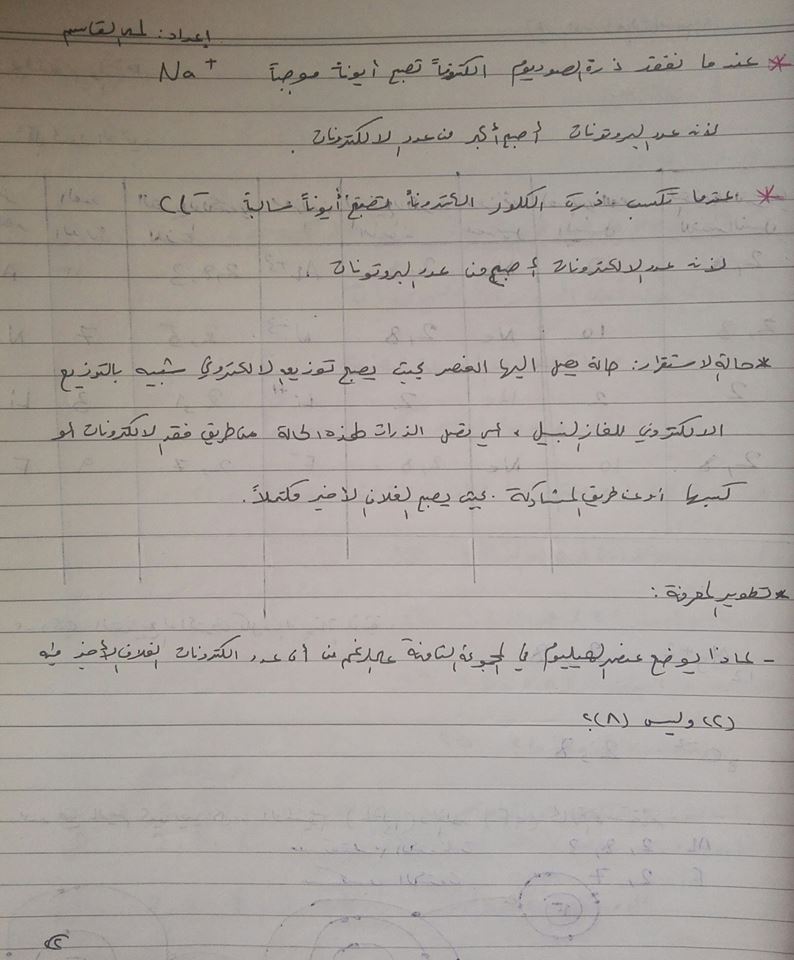 إعداد: لمى القاسم
* عندما تفقد ذرة الصوديوم الكتروناً تصبح أيوناً موجباً Na+
لأنه عدد البروتونات أصبح أكبر من عدد الالكترونات.
* عندما تكسب ذرة الكلور الكترونا تصبح أيوناً سالباً Cl-
لأنه عدد الالكترونات أصبح من عدد البروتونات.
* حالة الاستقرار: حالة يصل اليها العنصر بحيث يصبح توزيعه الالكتروني شبيه بالتوزيع
الالكتروني للغاز النبيل، أي تصل الذرات لهذه الحالة من طريق فقد الالكترونات أو
كسبها أو عن طريق المشاركة. بحيث يصبح الغلاف الأخير مكتملاً.
* تطوير المعرفة:
- لماذا يوضع عنصر الهيليوم في المجموعة الثامنة على الرغم من أن عدد الكترونات الغلاف الأخير فيه
(٢) وليس (٨)؟